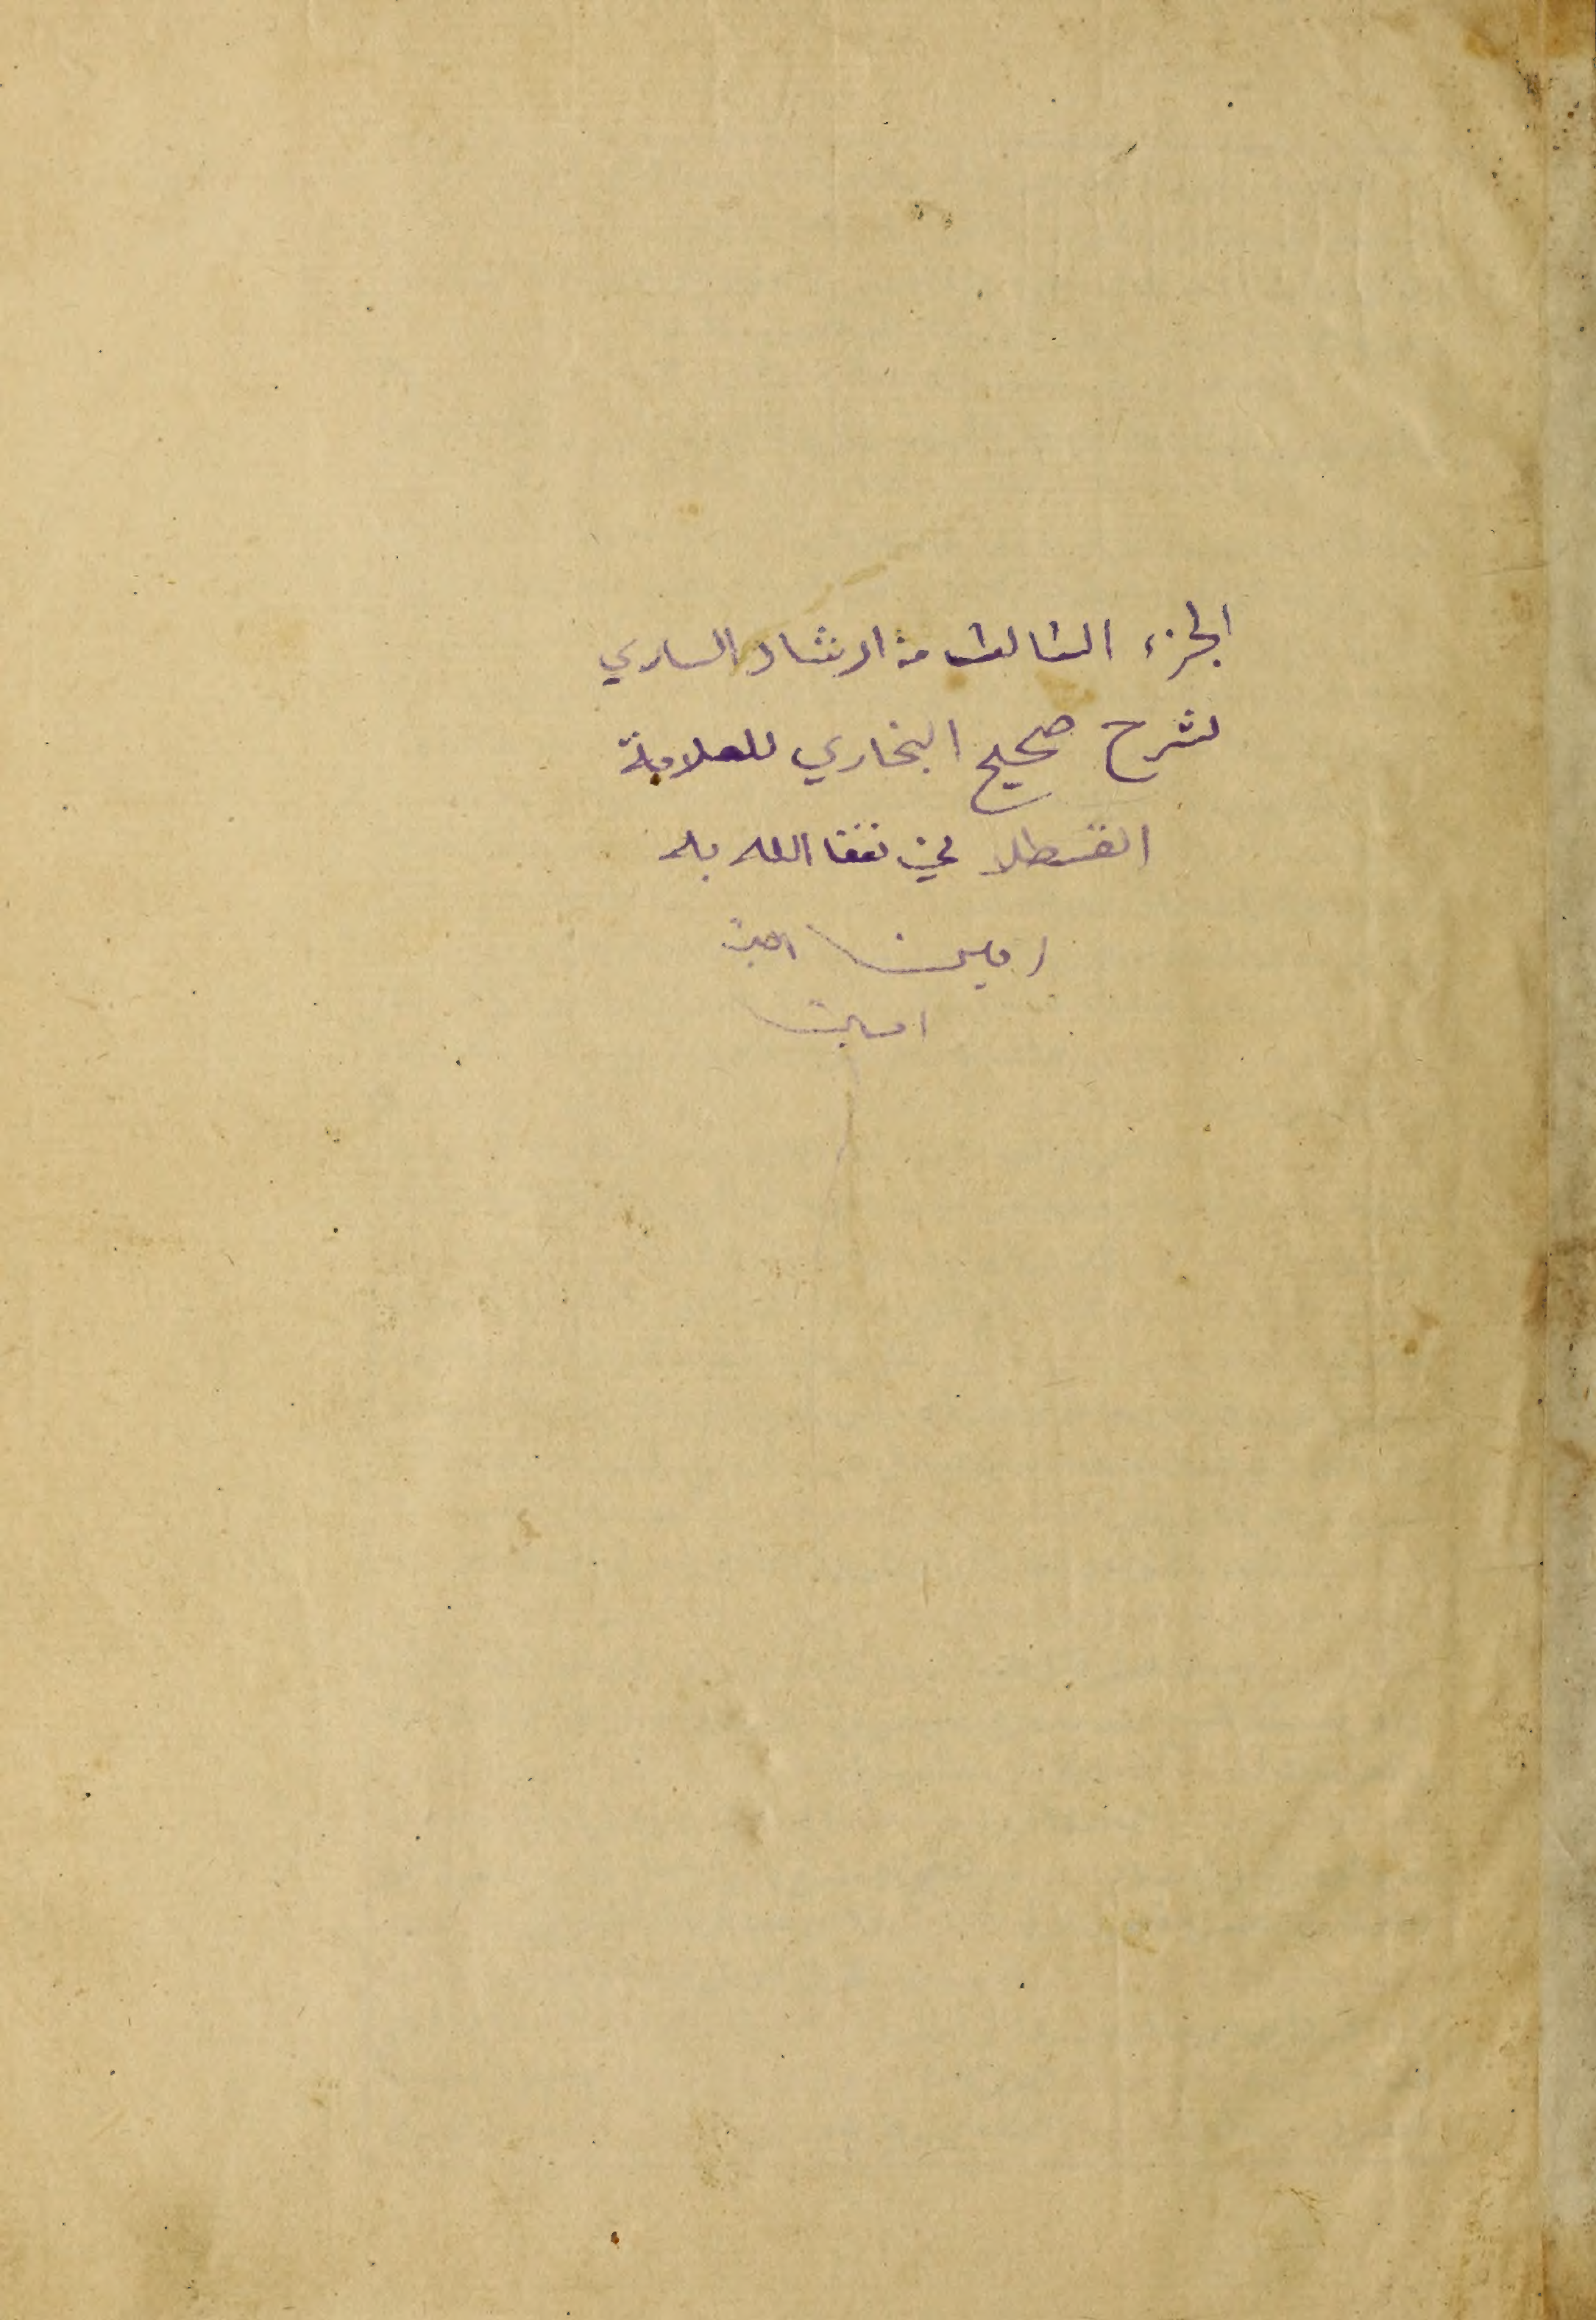 الجزء الثالث من ارشاد الساري
لشرح صحيح البخاري للعلامة
القسطلاني نفعنا الله به
امين امين
امين